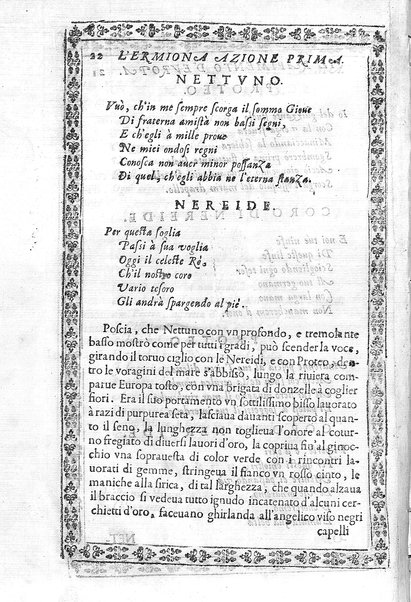 22 L'ERMIONA AZIONE PRIMA.
NETTVNO.
Vuò, ch'in me sempre scorga il sommo Gioue
Di fraterna amistà non bassi segni,
E ch'egli à mille proue
Ne miei ondosi regni
Conosca non auer minor possanza
Di quel, ch'egli abbia ne l'eterna stanza.
NEREIDE.
Per questa soglia
Passi à sua voglia
Oggi il celeste Rè,
Ch'il nostro coro
Vario tesoro
Gli andrà spargendo al piè.
Poscia, che Nettuno con vn profondo, e tremolante
basso mostrò come per tutti i gradi, può scender la voce,
girando il toruo ciglio con le Nereidi, e con Proteo, den-
tro le voragini del mare s'abbissò, lungo la riuiera com-
parue Europa tosto, con vna brigata di donzelle à coglier
fiori. Era il suo portamento vn sottilissimo bisso lauorato
à razi di purpurea seta, lasciaua dauanti scoperto al quan-
to il seno, la lunghezza non toglieua l'onore al cotur-
no fregiato di diuersi lauori d'oro, la copriua fin'al ginoc-
chio vna soprauesta di color verde con i rincontri la-
uorati di gemme, stringeua il fianco vn rosso cinto, le
maniche alla sirica, di tal larghezza, che quando alzaua
il braccio si vedeua tutto ignudo incatenato d'alcuni cer-
chietti d'oro, faceuano ghirlanda all'angelico viso negri
capelli